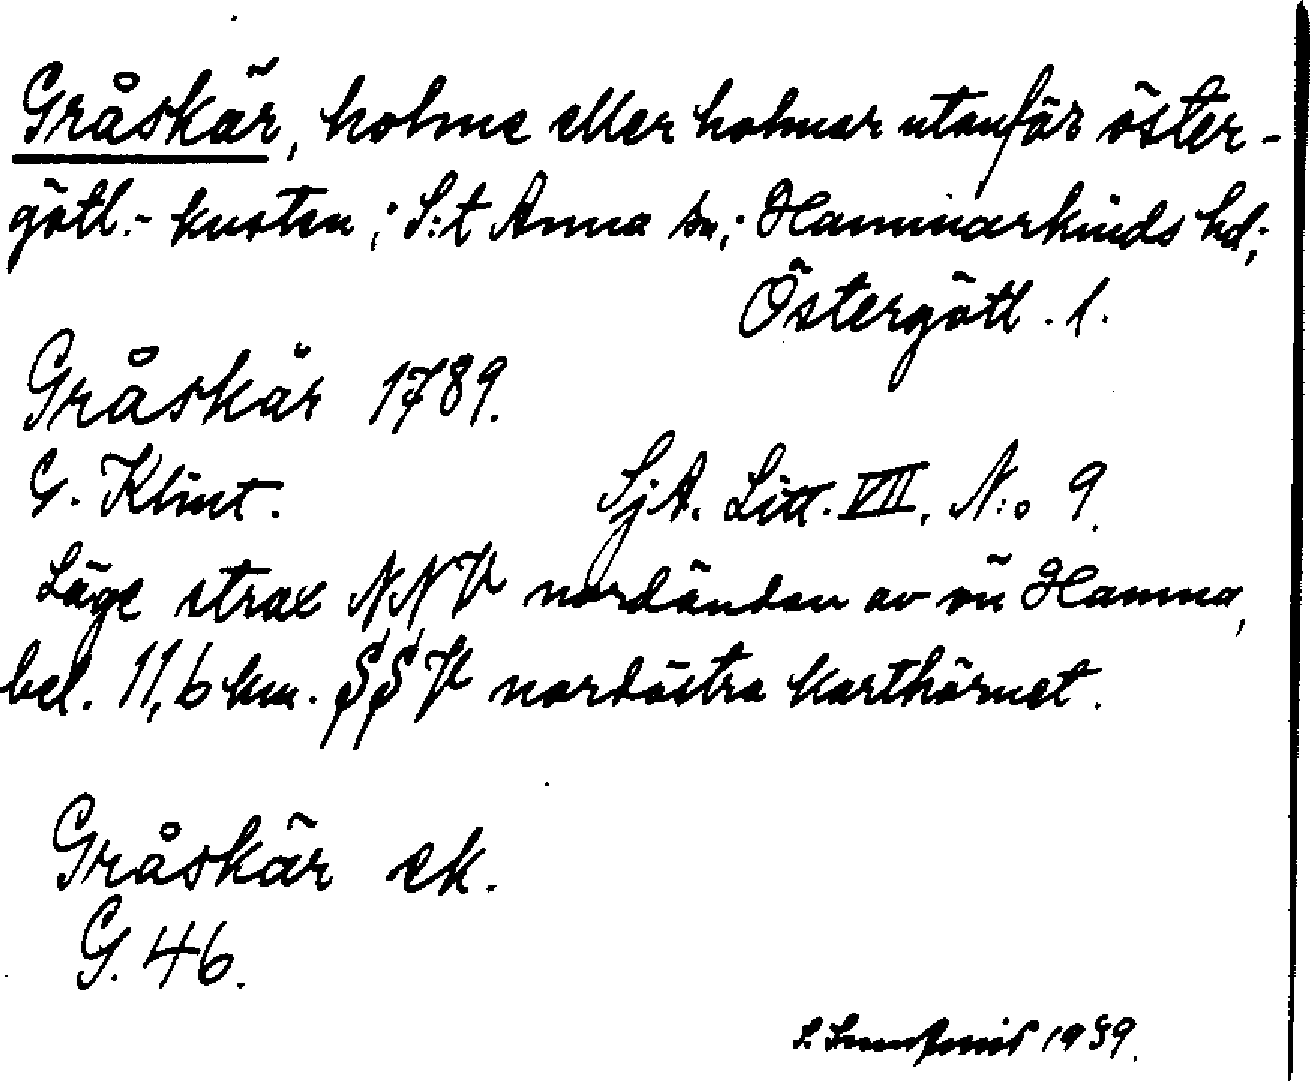 Gråskär, holme eller holmar utanför öster-
götl.- kusten; S:t Anna sn; Hammarkinds hd;
Östergötl. l.
Gråskär 1789.
G. Klint. SjA. Litt. VII. N:o 9.
Läge strax NNV nordändan av ön Hamna,
bel. 11,6 km. SSV nordöstra karthörnet.
Gråskär ek.
G. 46.
S. 1939.